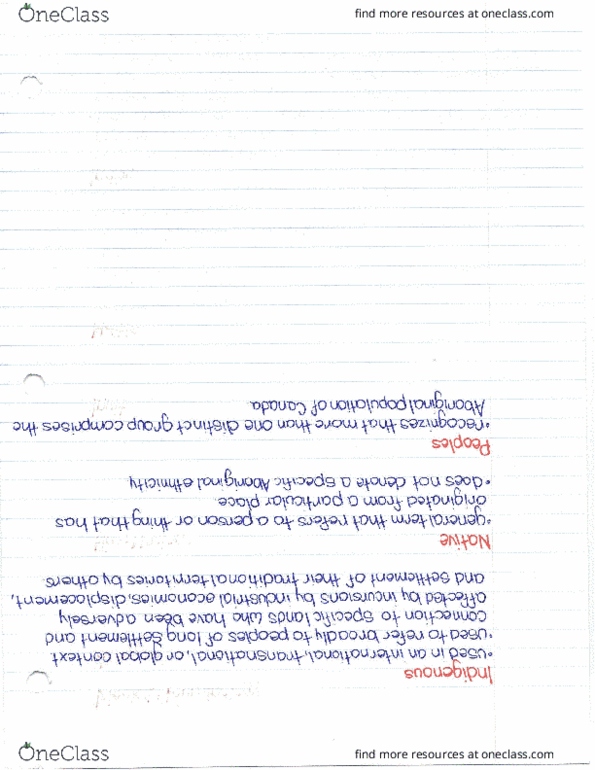 OneClass
find more resources at oneclass.com
Indigenous
•used in an international, transnational, or global context
•used to refer broadly to peoples of long settlement and
connection to specific lands who have been adversely
affected by incursions by industrial economies, displacement,
and settlement of their traditional territories by others
Native
•general term that refers to a person or thing that has
originated from a particular place.
•does not denote a specific Aboriginal ethnicity
Peoples
•recognizes that more than one distinct group comprises the
Aboriginal population of Canada.
OneClass
find more resources at oneclass.com